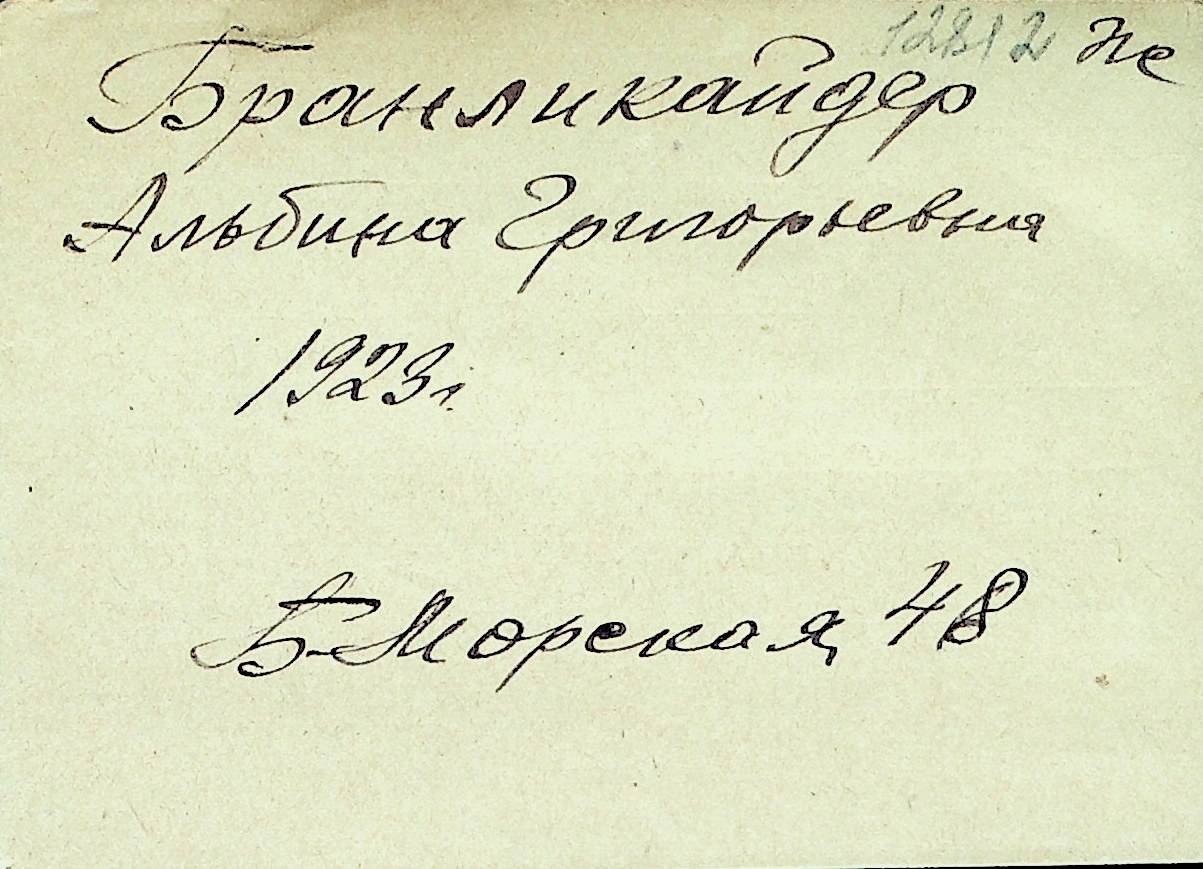 12812 Не
Бранликайдер
Альбина Григорьевна
1923г.
Б-Морская, 48